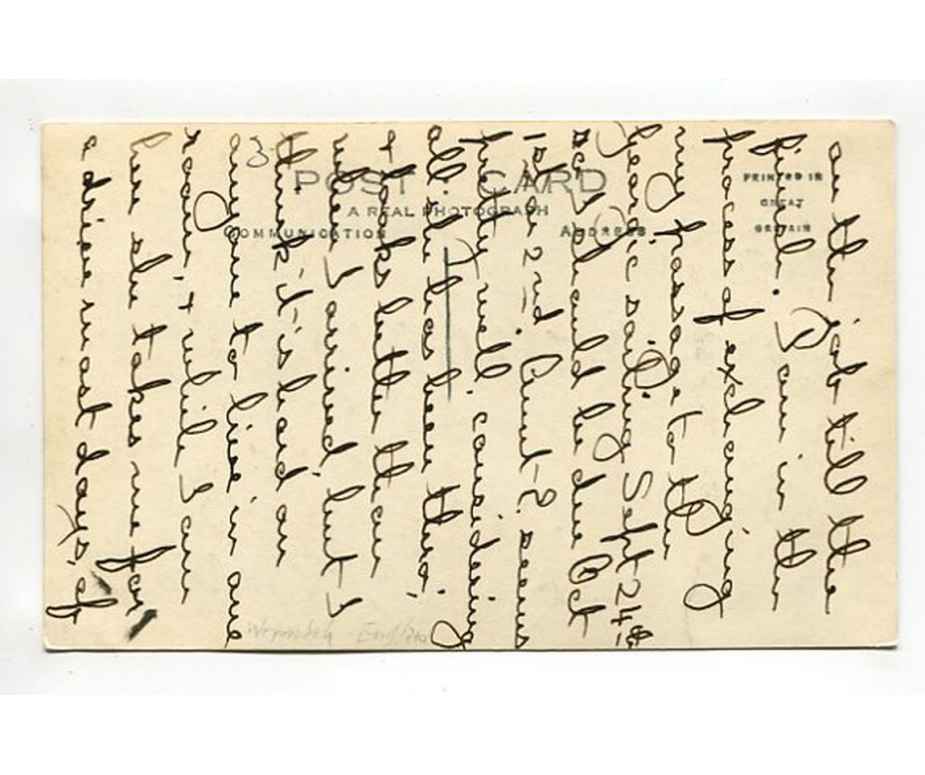 POST CARD
A REAL PHOTOGRAPH
COMMUNICATION
ADDRESS
PRINTED IN
GREAT
BRITAIN
3
on the job till the
finish. I am in the
process of exchanging
my passage to the
Georgic sailing Sept 24th
so I should be due Oct
1st or 2nd. Aunt E. seems
pretty well, considering
all she has been thro'
& looks better than
when I arrived, but I
think it is hard on
anyone to live in one
room, & while I am
here she takes me for
a drive most days, if
England